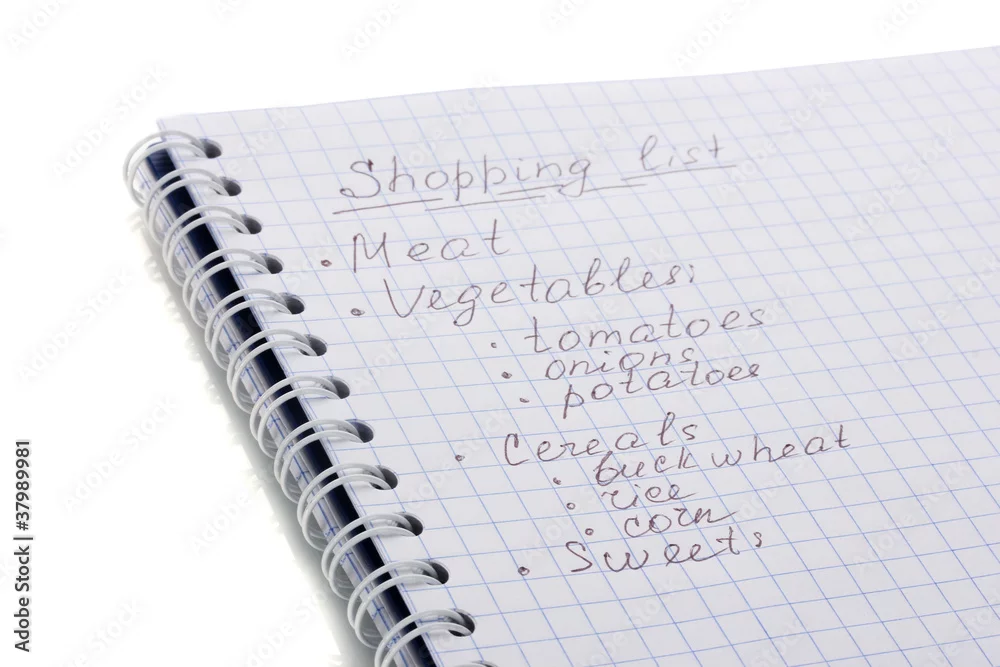 Shopping list
• Meat
• Vegetables:
• tomatoes
• onions
• potatoes
• Cereals
• buckwheat
• rice
• corn
• Sweets
Adobe Stock | #37989981